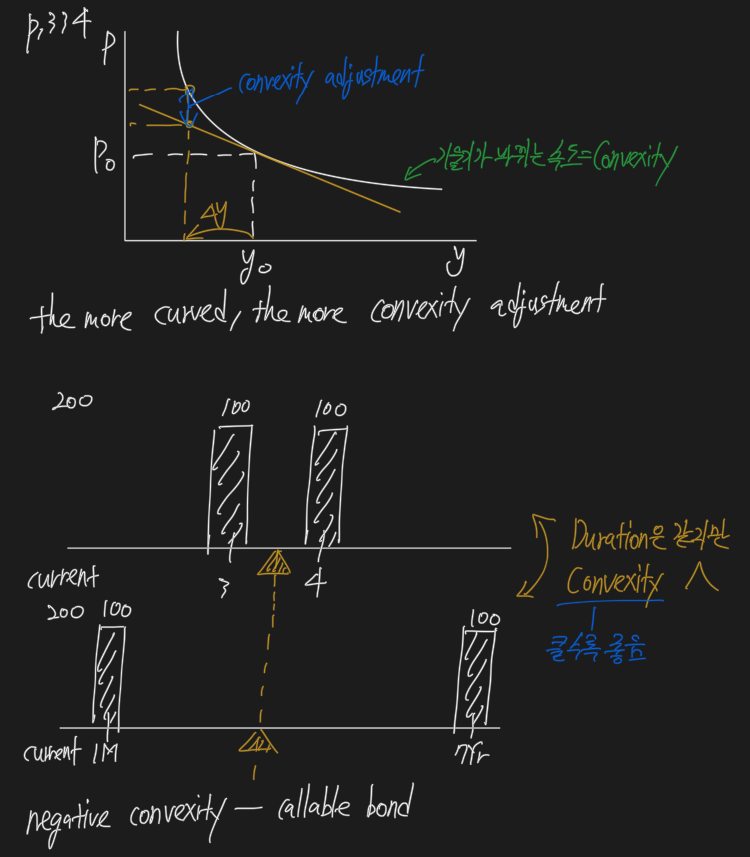 p,334
P
convexity adjustment
P₀
기울기가 바뀌는 속도=Convexity
Δy
y₀
y
the more curved, the more convexity adjustment
200
100
100
current
3
4
Duration은 같지만
Convexity ㅅ
클수록 좋음
200
100
100
current
1M
7Yr
negative convexity — callable bond